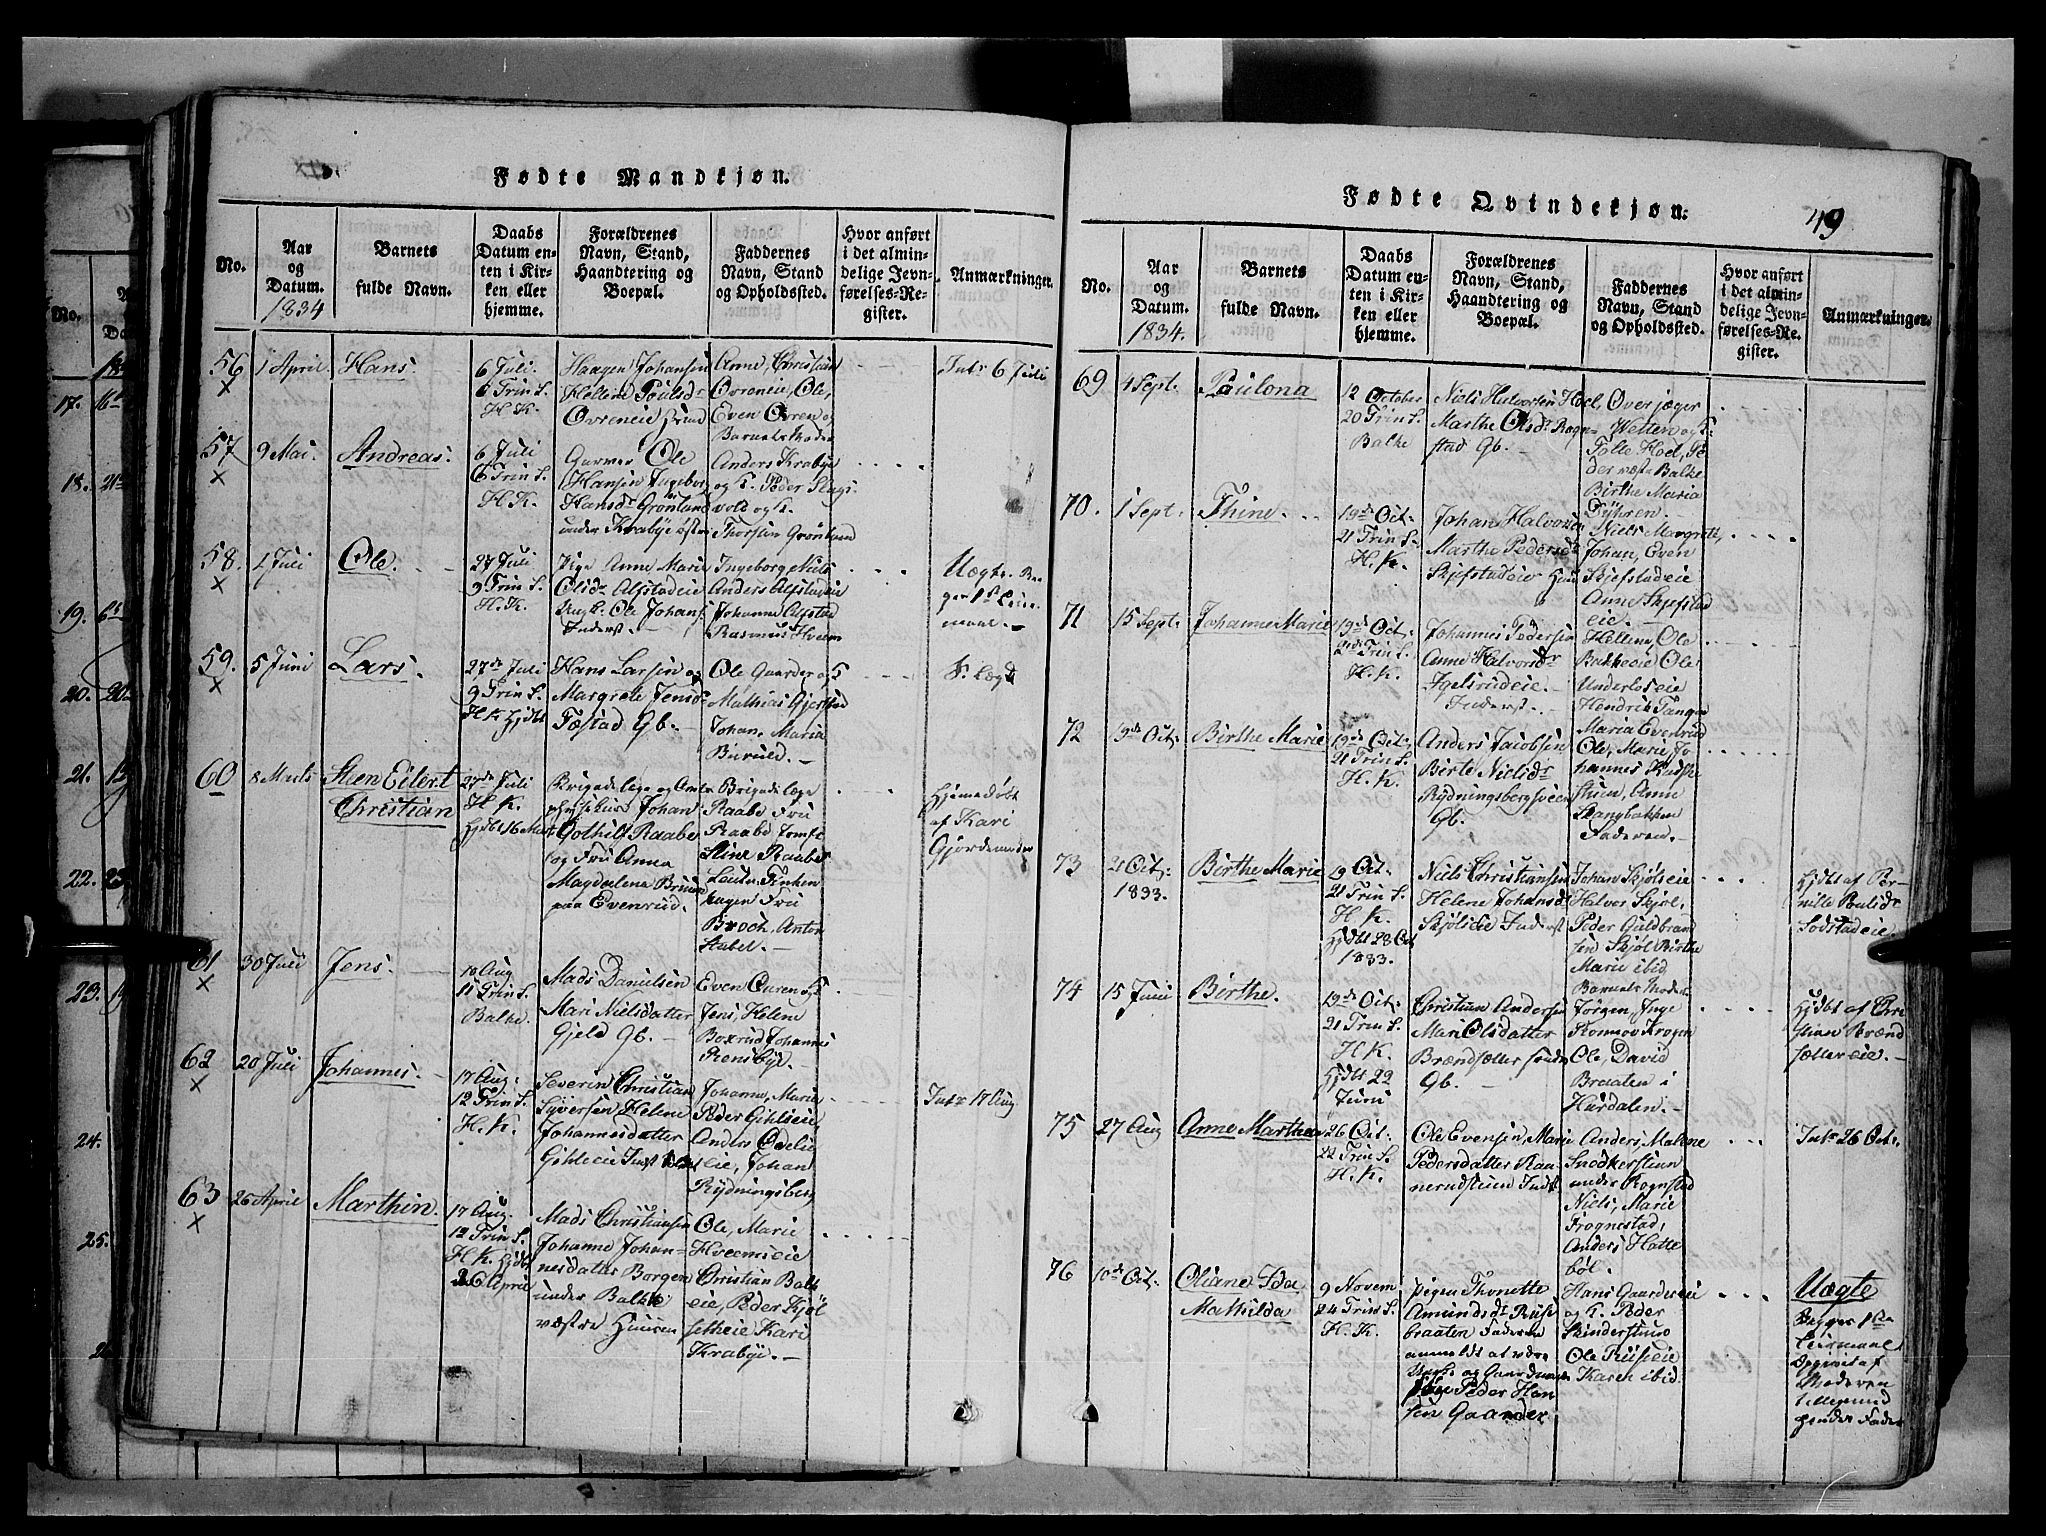 Fødte Mandkjøn.
No.
Aar
og
Datum.
1834
Barnets
fulde Navn.
Daabs
Datum en-
ten i Kir-
ken eller
hjemme.
Forældrenes
Navn, Stand,
Haandtering og
Boepæl.
Faddernes
Navn, Stand
og Opholdsted.
Hvor anført
i det almin-
delige Jevn-
førelses-Re-
gister.
Anmærkninger.
56
1 April
Hans
6 Juli
6 Trin S.
H. K.
Haagen Johansen
Hellene Poulsdr
Ovreneie
Anne, Christian
Ovreneie, Ole,
Even Ovren og
Barnets Moder
Intr 6 Juli
57
9 Mai.
Andreas.
6 Juli
6 Trin S.
H. K.
Garver Ole
Hansen Ingeborg
Hansdr Grønland
under Krabye østre
Anders Krabye
og K. Peder Slags
vold og K.
Thorsten Grønlund
58.
1 Juli
Ole.
27 Juli
9 Trin S.
H. K.
Pige Anne Marie
Olsdr Alfstadeie
Ungk. Ole Johans.
Inderst.
Ingeborg Niels
Anders Alfstadeie
Johanne Alfstad
Rasmus Hveem
Uægte. Be
ger 1ste Leier
maal.
59.
5 Juni
Lars.
27de Juli
9 Trin S.
H K Hjdbt
Hans Larsen og
Margrete Jensdr
Tøstad Gb.
Ole Gaarder og K
Mathias Gjersstad
Johan, Maria
Buruld.
60
8 Marts
Steen Eilert
Christian
27de Juli
H. K.
Hjdbt 16 Marts
Brigadelæge og Amts
physikus Johan
Gothilf Raabe
og Frue Anna
Magdalena Bruun
paa Evenrud.
Brigadelæge
Raabe Frue
Raabe Jomfr
Stine Raabe
Leutn Finken
hagen Frue
Broch, Anton
Stabel.
Hjemmedøbt
af Kari
Gjordemoder
61
30 Juli
Jens.
10 Aug
11 Trin S.
Balke.
Mads Danielsen
Mari Nielsdatter
Gjeld Gb.
Even Ovren og K
Jens, Helene
Boxrud, Johannes
Rensbye.
62
20 Juli
Johannes.
17 Aug.
12 Trin S.
H. K.
Severin Christian
Syversen Helene
Johannesdatter
Gihleeie Indst
Johanne, Marie
Peder Gihleeie,
Anders Ødelie
eie, Johan
Rydningsberg
Intr 17 Aug
63
26 April
Marthin.
17 Aug.
12 Trin S.
H. K. Hjdbt
26 April
Mads Christiansen
Johanne Johan=
nesdatter Borgen
under Balke
væstre Huusm
Ole, Marie
Hveemseie
Christian Balk
eie, Peder Skjøl
setheie Kari
Krabye.
Fødte Qvindekjøn.
49
No.
Aar
og
Datum.
1834.
Barnets
fulde Navn.
Daabs
Datum en-
ten i Kir-
ken eller
hjemme.
Forældrenes
Navn, Stand,
Haandtering og
Boepæl.
Faddernes
Navn, Stand
og Opholdsted.
Hvor anført
i det almin-
delige Jevn-
førelses-Re-
gister.
Anmærkninger.
69
4 Sept.
Paulona
12 October
20 Trin S.
Balke
Niels Halvorsen Hoel,
Marthe Olsdr Rogn=
stad Gb.
Overjæger
Wetten og K.
Tolle Hoel, Pe
der væstre Balke
Birthe Maria
Fyhren.
70.
1 Sept.
Thine.
19de Oct.
21 Trin S.
H. K.
Johan Halvorsen
Marthe Pedersdr
Skjefstadeie
Niels Margrethe,
Johan, Even
Skjefstadeie
Anne Skjefstad
eie.
71
15 Sept.
Johanne Marie
19de Oct.
21de Trin S.
H. K.
Johannes Pedersen
Anne Halvorsdr
Igelsrudeie.
Inderst.
Hellena, Ole
Bakkeeie Ole
Underloseie
Hendrik Tangen
Maria Evenrud
72
19de Oct.
Birthe Marie
19de Oct.
21 Trin S.
H. K.
Anders Jacobsen
Birte Nielsdr
Rydningsbergseie
Gb.
Ole, Marie, Jo
hannes Kudske
stuen, Anne
Langbakken
Faderen.
73
21 Oct.
1833.
Birthe Marie
19 Oct.
21 Trin S.
H. K.
Hjdbt 28 Oct
1833.
Niels Christiansen
Helene Johansdr
Skjølseie Inderst
Johan Skjølseie
Halvor Skjøl,
Peder Guldbrand
sen Skjøl Birthe
Marie ibid
Barnets Moder
Hjdbt af Per-
nille Poulsdr
Sodstadeie.
74
15 Juni
Birthe.
19de Oct.
21 Trin S.
H K.
Hjdbt 22
Juni
Christian Andersen
Mari Olsdatter
Brændsætter søndre
Gb.
Jørgen, Inge
Romnov Krogen
Ole, David
Braaten i
Hurdalen.
Hjdbt af Chri
stian Brænd
sættereie.
75
27 Aug
Anne Marthea
26 Oct.
22 Trin S.
H. K.
Ole Evensen, Marie
Pedersdatter Raa=
nerudstuen Indst
Anders, Malene
Snedkerstuen
under Rognstad
Niels, Marie
Frognestad,
Anders Hatte
bøl.
Intr 26 Oct.
76
10de Oct.
Oliane Ida
Mathilda
9 Novem
24 Trin S.
H. K.
Pigen Thonette
Amundsdr Ruse
braaten Faderen
anmeldt at være
Ungk. og Gaardmands
søn Peder Han
sen Gaarder
Hans Gaarderseie
og K. Peder
Skinderstuen
Ole Ruseeie
Karen ibid
Uægte
Begges 1ste
Leiermaal
Opgivet af
Moderen